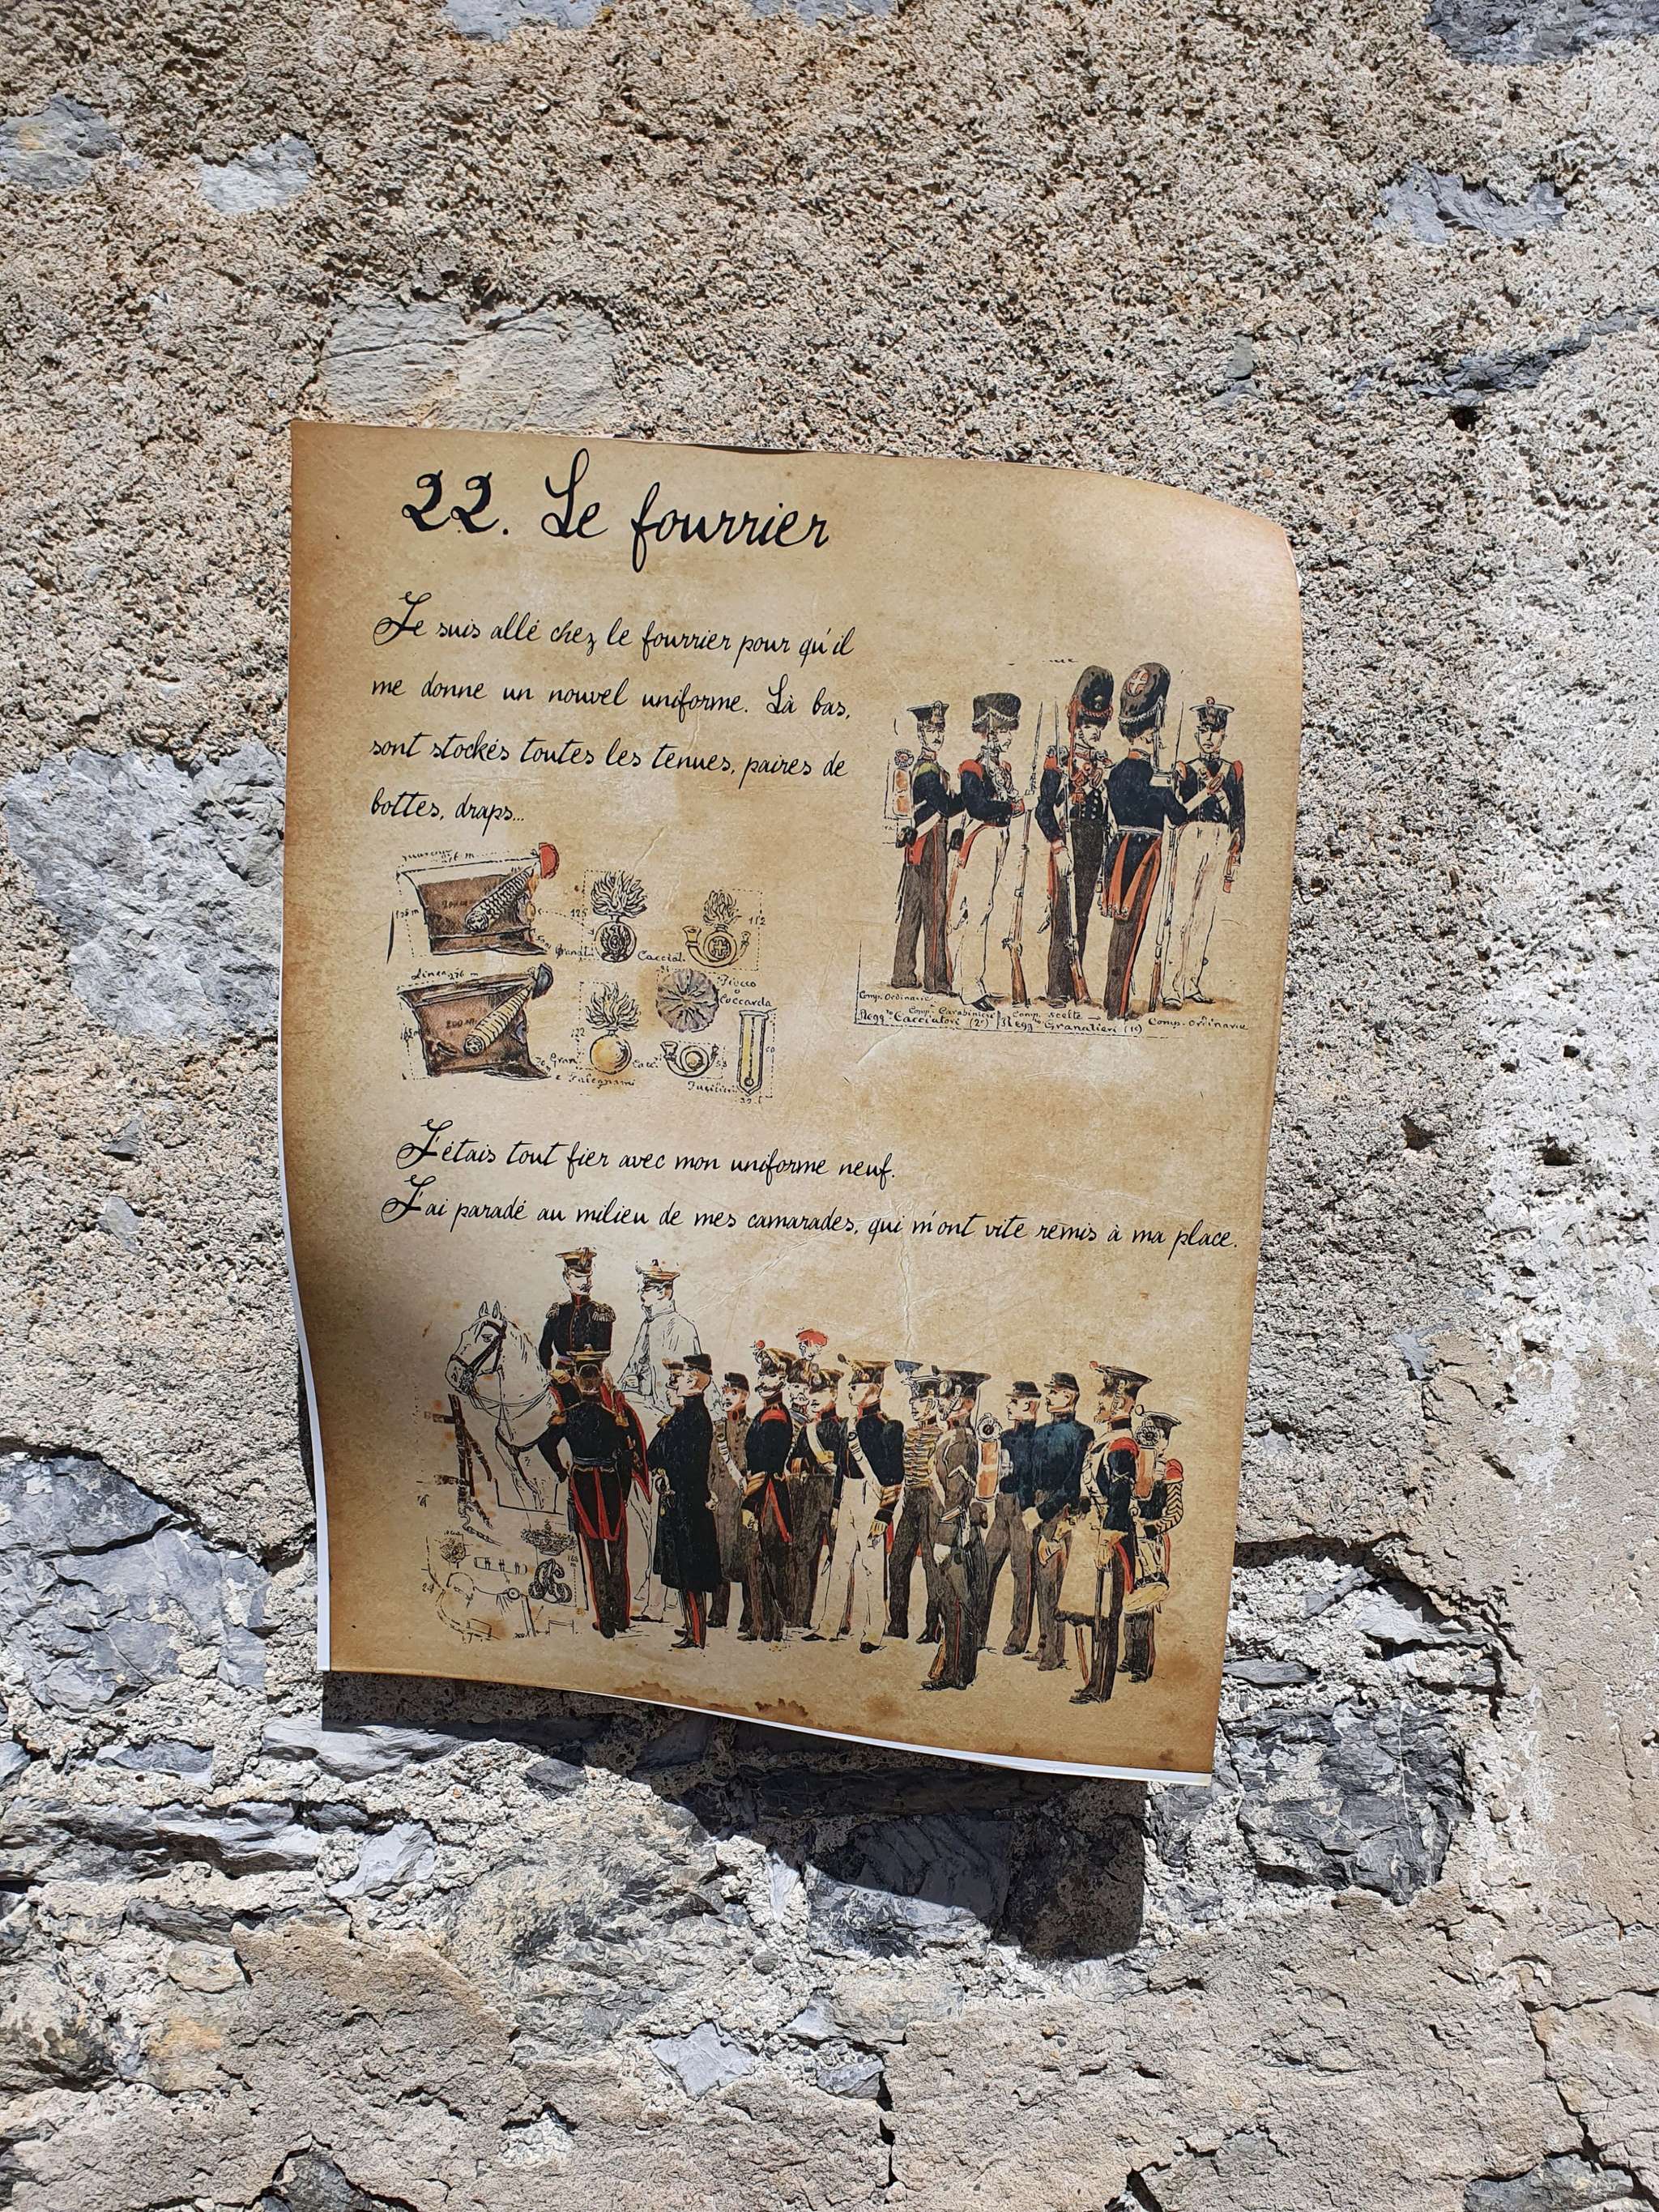 22. Le fourrier
Je suis allé chez le fourrier pour qu'il
me donne un nouvel uniforme. Là bas,
sont stockés toutes les tenues, paires de
bottes, draps...
276 m
200 m
125
112
Granat.
Cacciat.
Linea 276 m
Fiocco
o
Coccarda
122
Gran.
Cacc.
53
e Falegnami
Fucilieri
Comp. Ordinarie
Comp. Carabinieri
Comp. scelte
Comp. Ordinarie
Regg.to Cacciatori (2°)
Regg.to Granatieri (1°)
J'étais tout fier avec mon uniforme neuf.
J'ai paradé au milieu de mes camarades, qui m'ont vite remis à ma place.